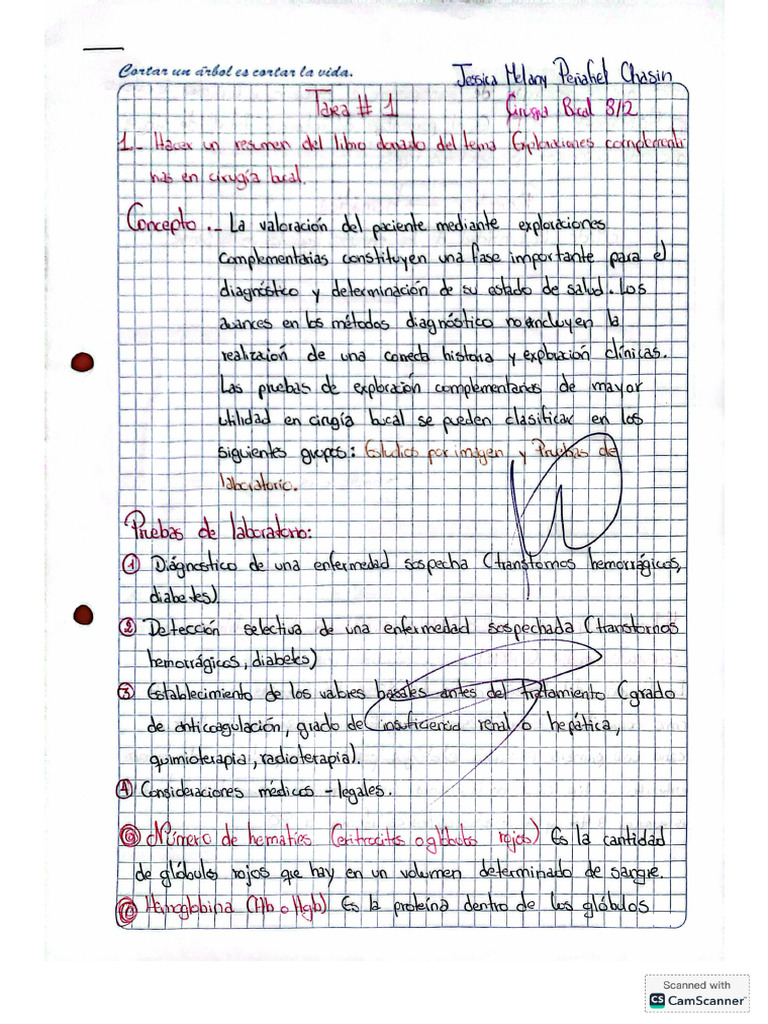 Cortar un árbol es cortar la vida.
Jessica Melany Peñafiel Chasin
Tarea # 1
Cirugia Bucal 3/2
1.- Hacer un resumen del libro donado del tema Exploraciones complementa-
rias en cirugía bucal.
Concepto.- La valoración del paciente mediante exploraciones
complementarias constituyen una fase importante para el
diagnóstico y determinación de su estado de salud. Los
avances en los métodos diagnóstico no excluyen la
realización de una correcta historia y exploración clínicas.
Las pruebas de exploración complementarias de mayor
utilidad en cirugía bucal se pueden clasificar en los
siguientes grupos: Estudios por imagen y Pruebas de
laboratorio.
Pruebas de laboratorio:
① Diágnostico de una enfermedad sospecha (transtornos hemorrágicos,
diabetes)
② Detección selectiva de una enfermedad sospechada (transtornos
hemorrágicos, diabetes)
③ Establecimiento de los valores basales antes del tratamiento (grado
de anticoagulación, grado de insuficiencia renal o hepática,
quimioterapia, radioterapia).
④ Consideraciones médicos - legales.
Número de hematíes (eritrocitos o glóbulos rojos) Es la cantidad
de glóbulos rojos que hay en un volumen determinado de sangre.
Hemoglobina (Hb o Hgb) Es la proteína dentro de los glóbulos
Scanned with
CS CamScanner